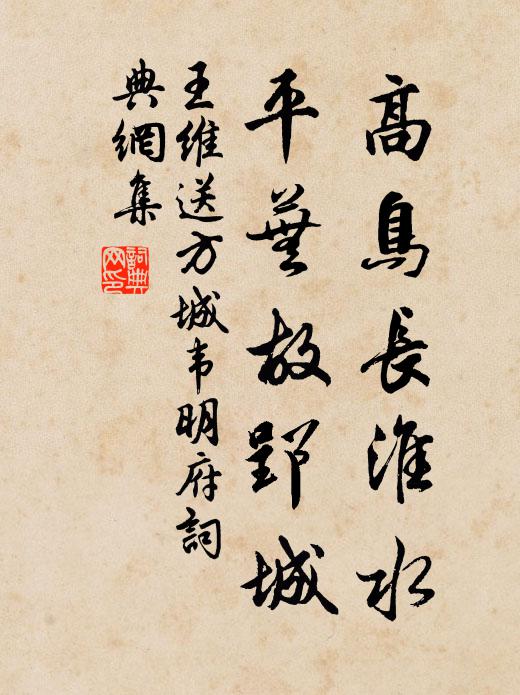 高鳥長淮水
平蕪故郢城
王維送方城韦明府詞
典網集
詞典网印